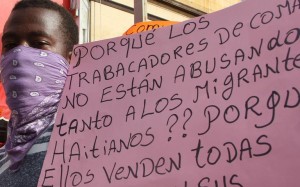 ¿PORQUE LOS
TRABACADORES DE COMA
NO ESTÁN ABUSANDO
TANTO A LOS MIGRANTE
HAITIANOS ?? PORQU
ELLOS VENDEN TODAS